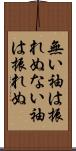 無い袖は振
れぬない袖
は振れぬ